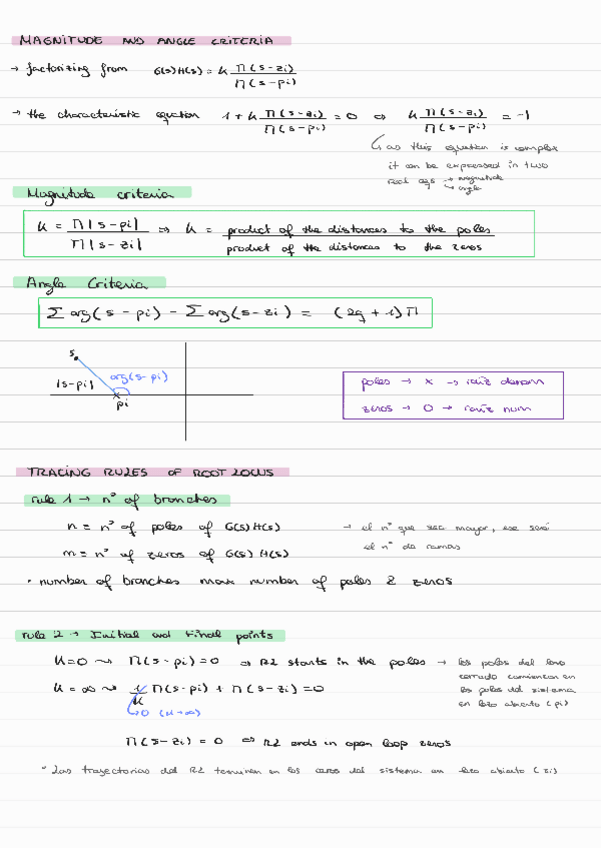 MAGNITUDE AND ANGLE CRITERIA
→ factorizing from G(s)H(s) = K Π(s-zi) / Π(s-pi)
→ the characteristic equation 1+K Π(s-zi) / Π(s-pi) = 0 ⇔ K Π(s-zi) / Π(s-pi) = -1
as this equation is complex
it can be expressed in two
real eqs → magnitude
→ angle
Magnitude criteria
K = Π|s-pi| / Π|s-zi| ⇒ K = product of the distances to the poles / product of the distances to the zeros
Angle Criteria
Σ arg(s-pi) - Σ arg(s-zi) = (2q+1)Π
s
arg(s-pi)
|s-pi|
pi
poles → x → raíz denom
zeros → O → raíz num
TRACING RULES OF ROOT LOCUS
rule 1 → nº of branches
n = nº of poles of G(s)H(s) → el nº que sea mayor, ese será
m = nº of zeros of G(s)H(s) el nº de ramas
· number of branches max number of poles & zeros
rule 2 → Initial and Final points
K=0 ⤳ Π(s-pi)=0 ⇒ RL starts in the poles → los polos del lazo
cerrado comienzan en
K=∞ ⤳ 1/K Π(s-pi) + Π(s-zi) = 0 los polos del sistema
en lazo abierto (pi)
→0 (K→∞)
Π(s-zi) = 0 ⇒ RL ends in open loop zeros
· Las trayectorias del RL terminan en los ceros del sistema en lazo abierto (zi)